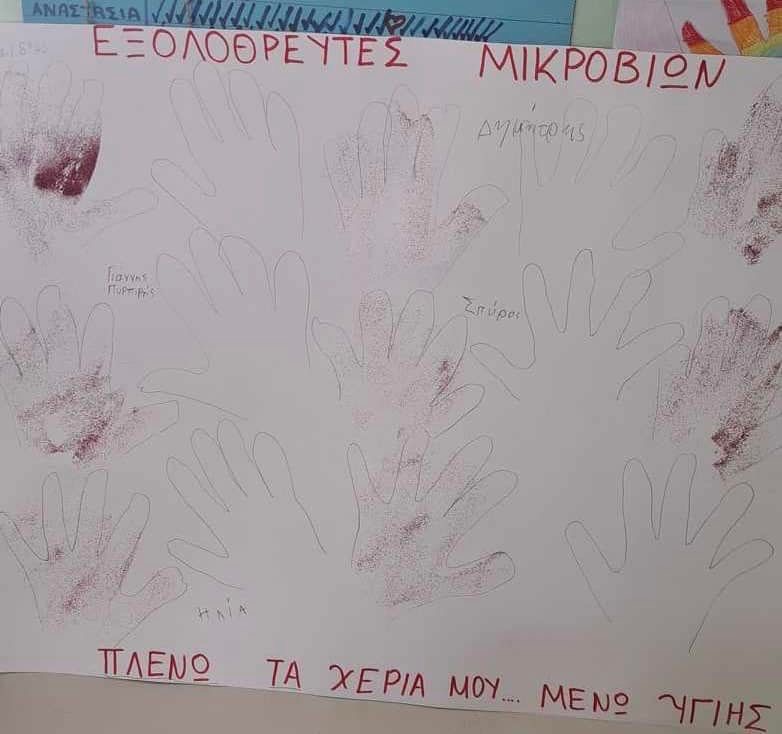 ΑΝΑΣΤΑΣΙΑ
ΕΞΟΛΟΘΡΕΥΤΕΣ ΜΙΚΡΟΒΙΩΝ
Δημήτρης
Γιαννης
Σπύρος
ΗΛΙΑ
ΠΛΕΝΩ ΤΑ ΧΕΡΙΑ ΜΟΥ.... ΜΕΝΩ ΥΓΙΗΣ